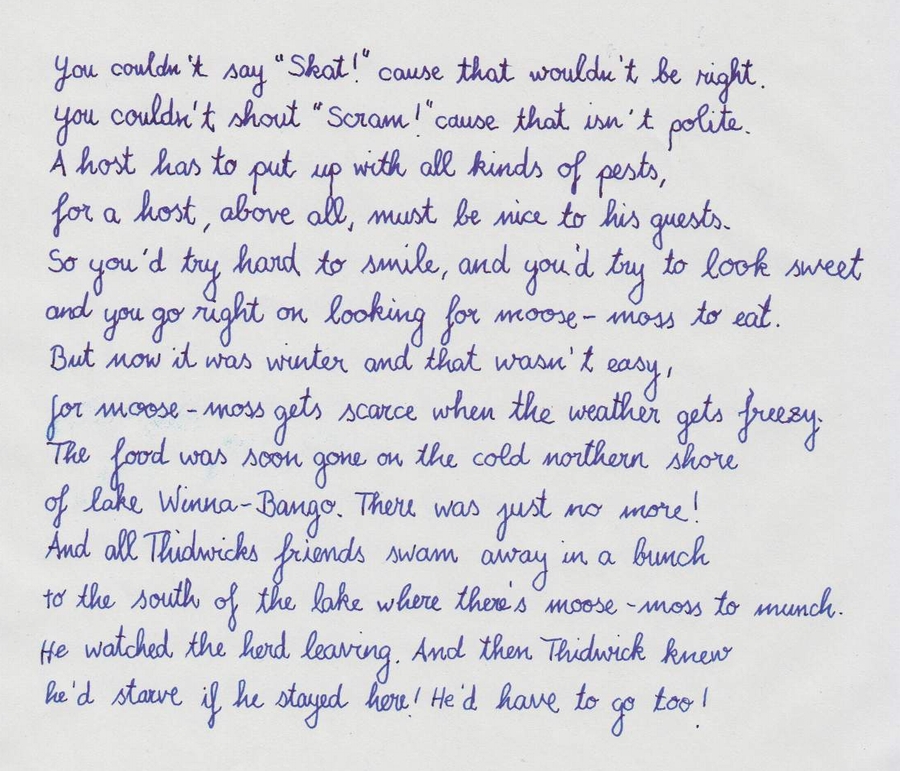 You couldn't say "Skat!" cause that wouldn't be right.
You couldn't shout "Scram!" cause that isn't polite.
A host has to put up with all kinds of pests,
for a host, above all, must be nice to his guests.
So you'd try hard to smile, and you'd try to look sweet
and you go right on looking for moose-moss to eat.
But now it was winter and that wasn't easy,
for moose-moss gets scarce when the weather gets freezy.
The food was soon gone on the cold northern shore
of lake Winna-Bango. There was just no more!
And all Thidwicks friends swam away in a bunch
to the south of the lake where there's moose-moss to munch.
He watched the herd leaving. And then Thidwick knew
he'd starve if he stayed here! He'd have to go too!